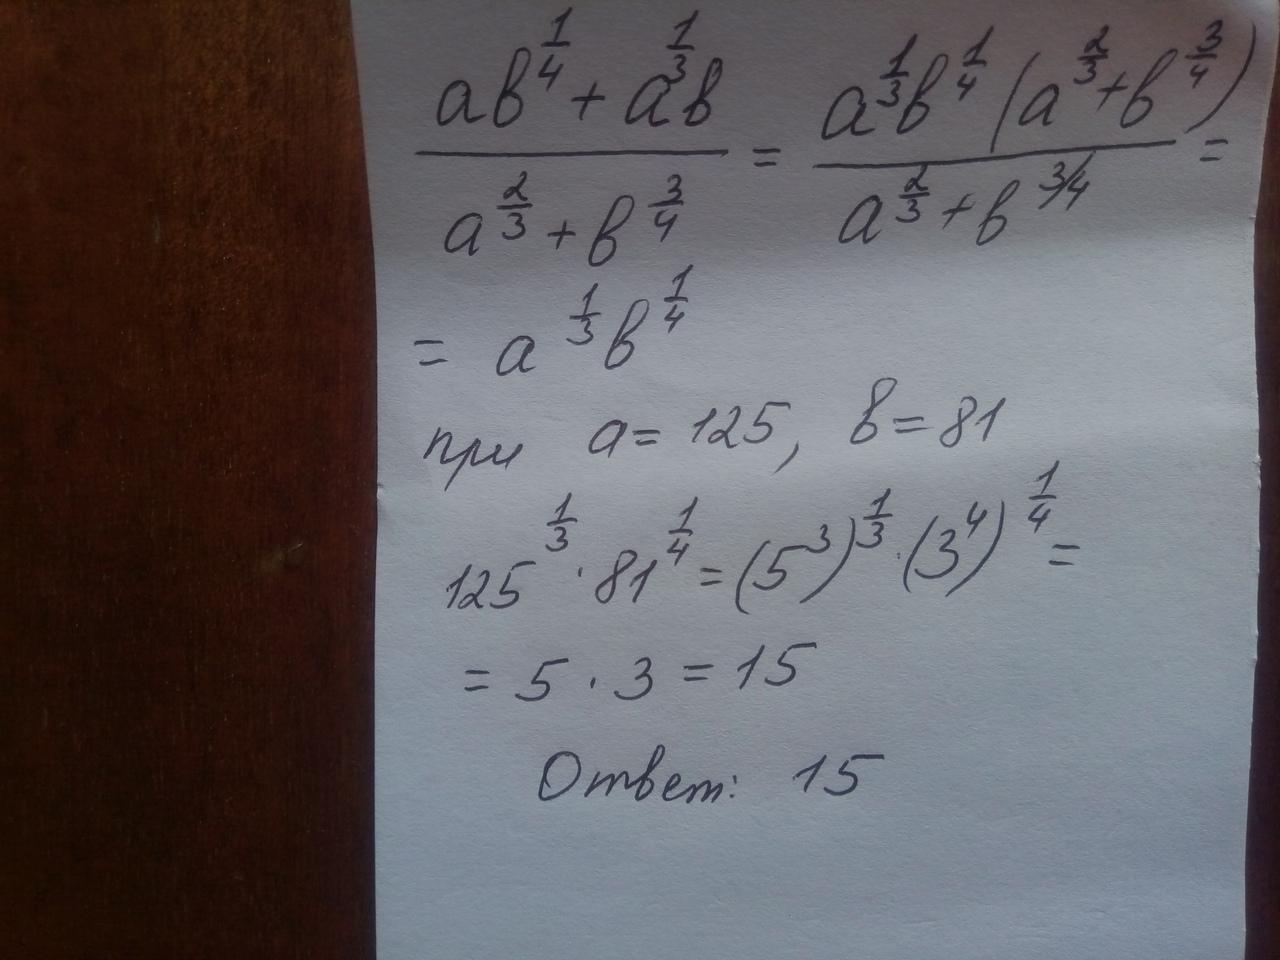 (ab^(1/4) + a^(1/3)b) / (a^(2/3) + b^(3/4)) = (a^(1/3)b^(1/4)(a^(2/3) + b^(3/4))) / (a^(2/3) + b^(3/4)) =
= a^(1/3)b^(1/4)
при a = 125, b = 81
125^(1/3) · 81^(1/4) = (5^3)^(1/3) · (3^4)^(1/4) =
= 5 · 3 = 15
Ответ: 15